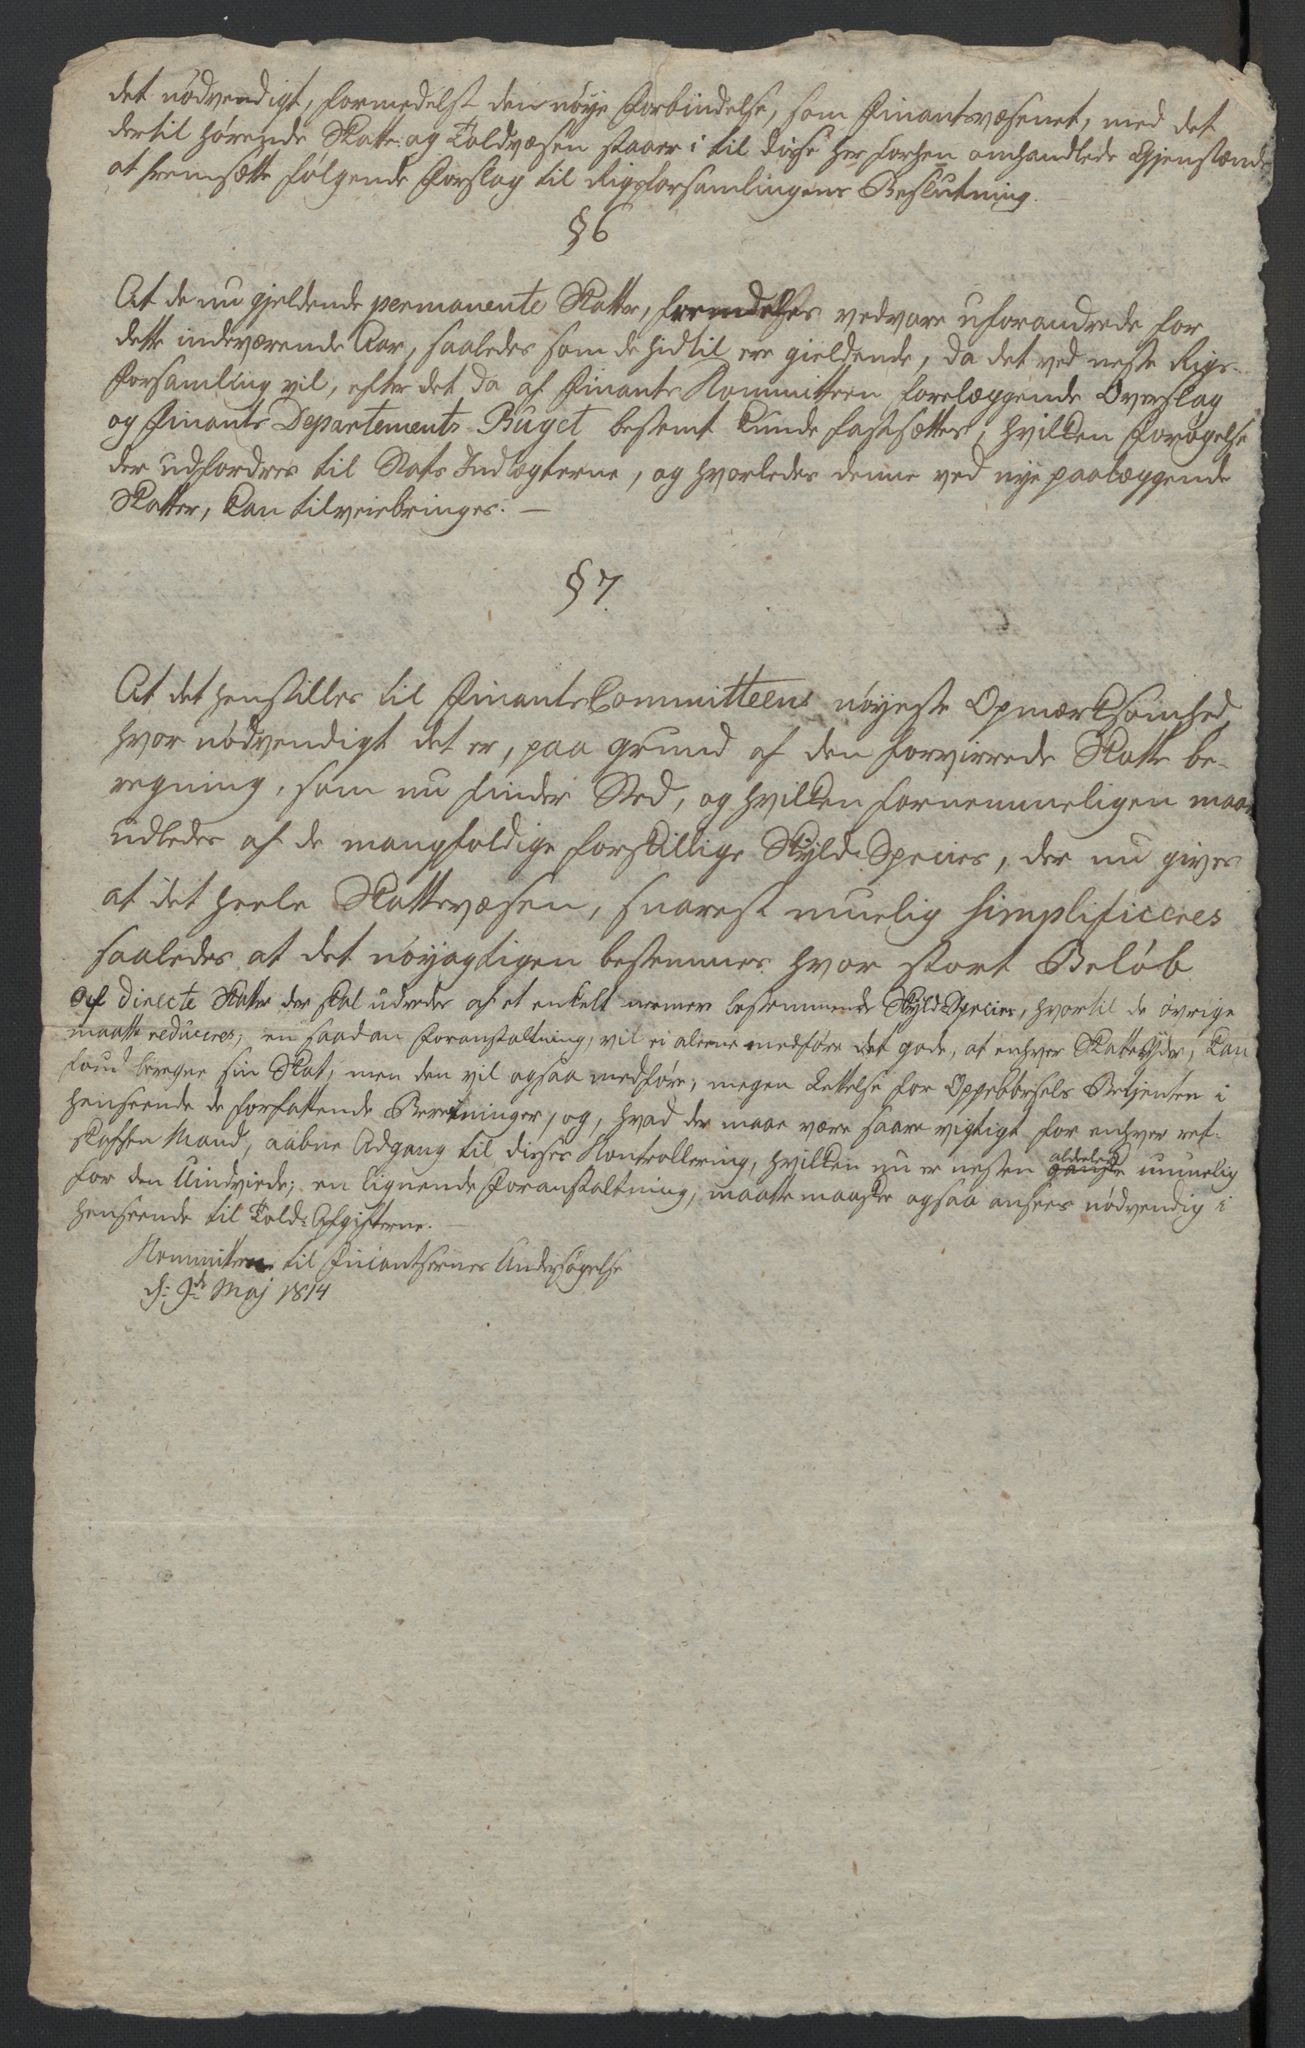 det nødvendigt, formedelst den nøye Forbindelse, som Finantsvæsenet, med det
dertil hørende Skatte- og Toldvæsen staaer i til disse her forhen omhandlede Gjenstande
at fremsætte følgende Forslag til Rigsforsamlingens Beslutning.
§ 6
At de nu gjeldende permanente Skatter, fremdeles vedvare uforandrede for
dette indeværende Aar, saaledes som de hidtil ere gieldende, da det ved neste Rigs-
forsamling vil, efter det da af Finants Kommitteen forelæggende Overslag
og Finants Departements Buget bestemt kunde fastsættes, hvilken Forøgelse
der udfordres til Stats Indtægterne, og hvorledes denne ved nye paalæggende
Skatter, kan tilveiebringes. —
§ 7.
At det henstilles til Finants Committeens nøyeste Opmærksomhed,
hvor nødvendigt det er, paa Grund af den forvirrede Skatte be-
regning, som nu finder Sted, og hvilken fornemmeligen maae
udledes af de mangfoldige forskillige Skyld-Species, der nu gives
at det heele Skattevæsen, snarest muelig simplificeres
saaledes at det nøyagtigen bestemmes hvor stort Beløb
af directe Skatter der skal udredes af et enkelt nermere bestemmende Skyld-Species, hvortil de øvrige
maatte reduceres; en saadan Foranstaltning, vil ei aleene medføre det gode, at enhver Skatteyder, kan
beregne sin Skat, men den vil ogsaa medføre, megen Lettelse for Oppebørsels Betjenten i
henseende de forfattende Beretninger, og, hvad der maae være saare vigtigt for enhver ret-
skaffen Mand, aabne Adgang til disses Kontrollering, hvilken nu er nesten ganske aldeles umuelig
for den Uindviede; en lignende Foranstaltning, maatte maaskee ogsaa ansees nødvendig i
henseende til Told-Afgifterne. —
Kommitteen til Finantsernes Undersøgelse
d: 9de Maj 1814